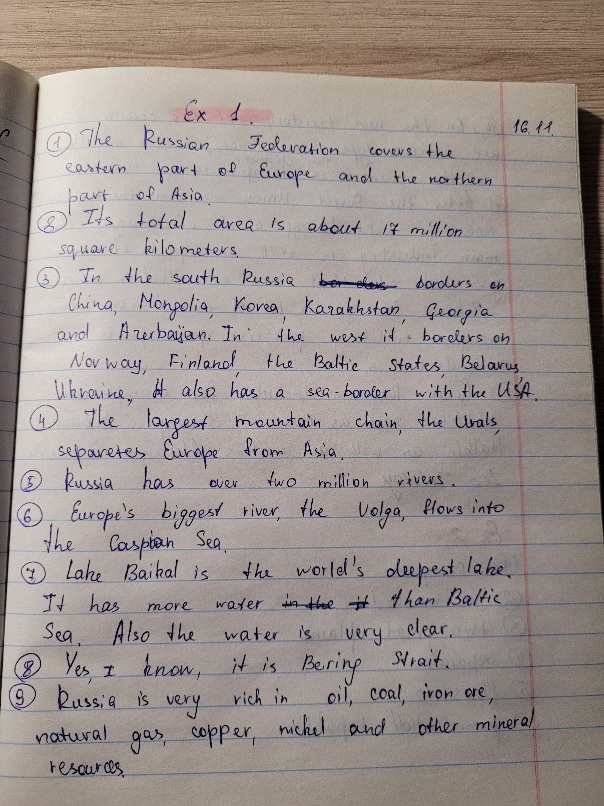 Ex 1.
16.11.
① The Russian Federation covers the
eastern part of Europe and the northern
part of Asia.
② Its total area is about 17 million
square kilometers
③ In the south Russia borders borders on
China, Mongolia, Korea, Kazakhstan, Georgia
and Azerbaijan. In the west it borders on
Norway, Finland, the Baltic States, Belarus,
Ukraine, It also has a sea-border with the USA.
④ The largest mountain chain, the Urals,
separetes Europe from Asia.
⑤ Russia has over two million rivers.
⑥ Europe's biggest river, the Volga, flows into
the Caspian Sea.
⑦ Lake Baikal is the world's deepest lake.
It has more water in the it than Baltic
Sea. Also the water is very clear.
⑧ Yes, I know, it is Bering Strait.
⑨ Russia is very rich in oil, coal, iron ore,
natural gas, copper, nickel and other mineral
resources.